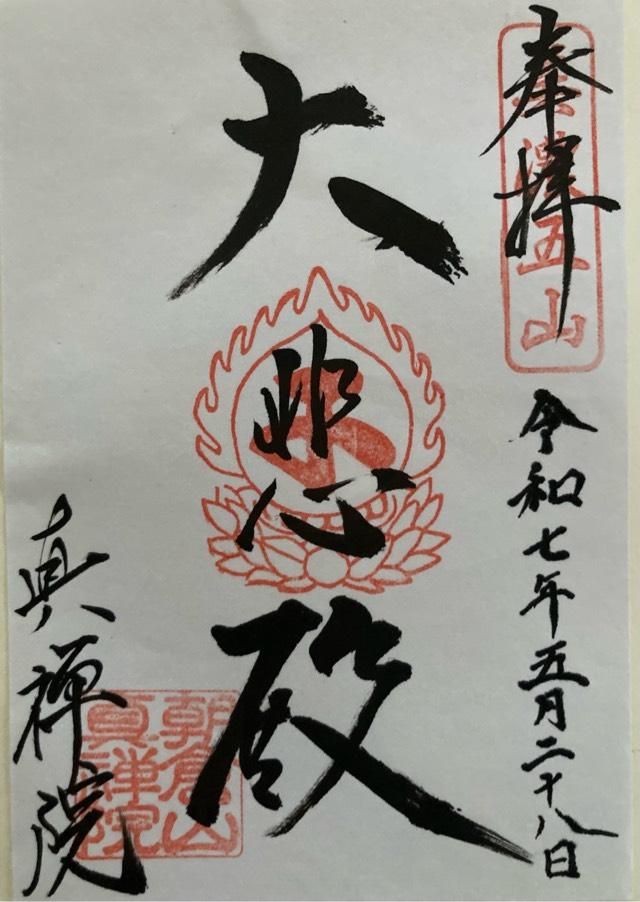 奉拝
五山
令和七年五月二十八日
大悲殿
朝倉山
真禅院
真禅院